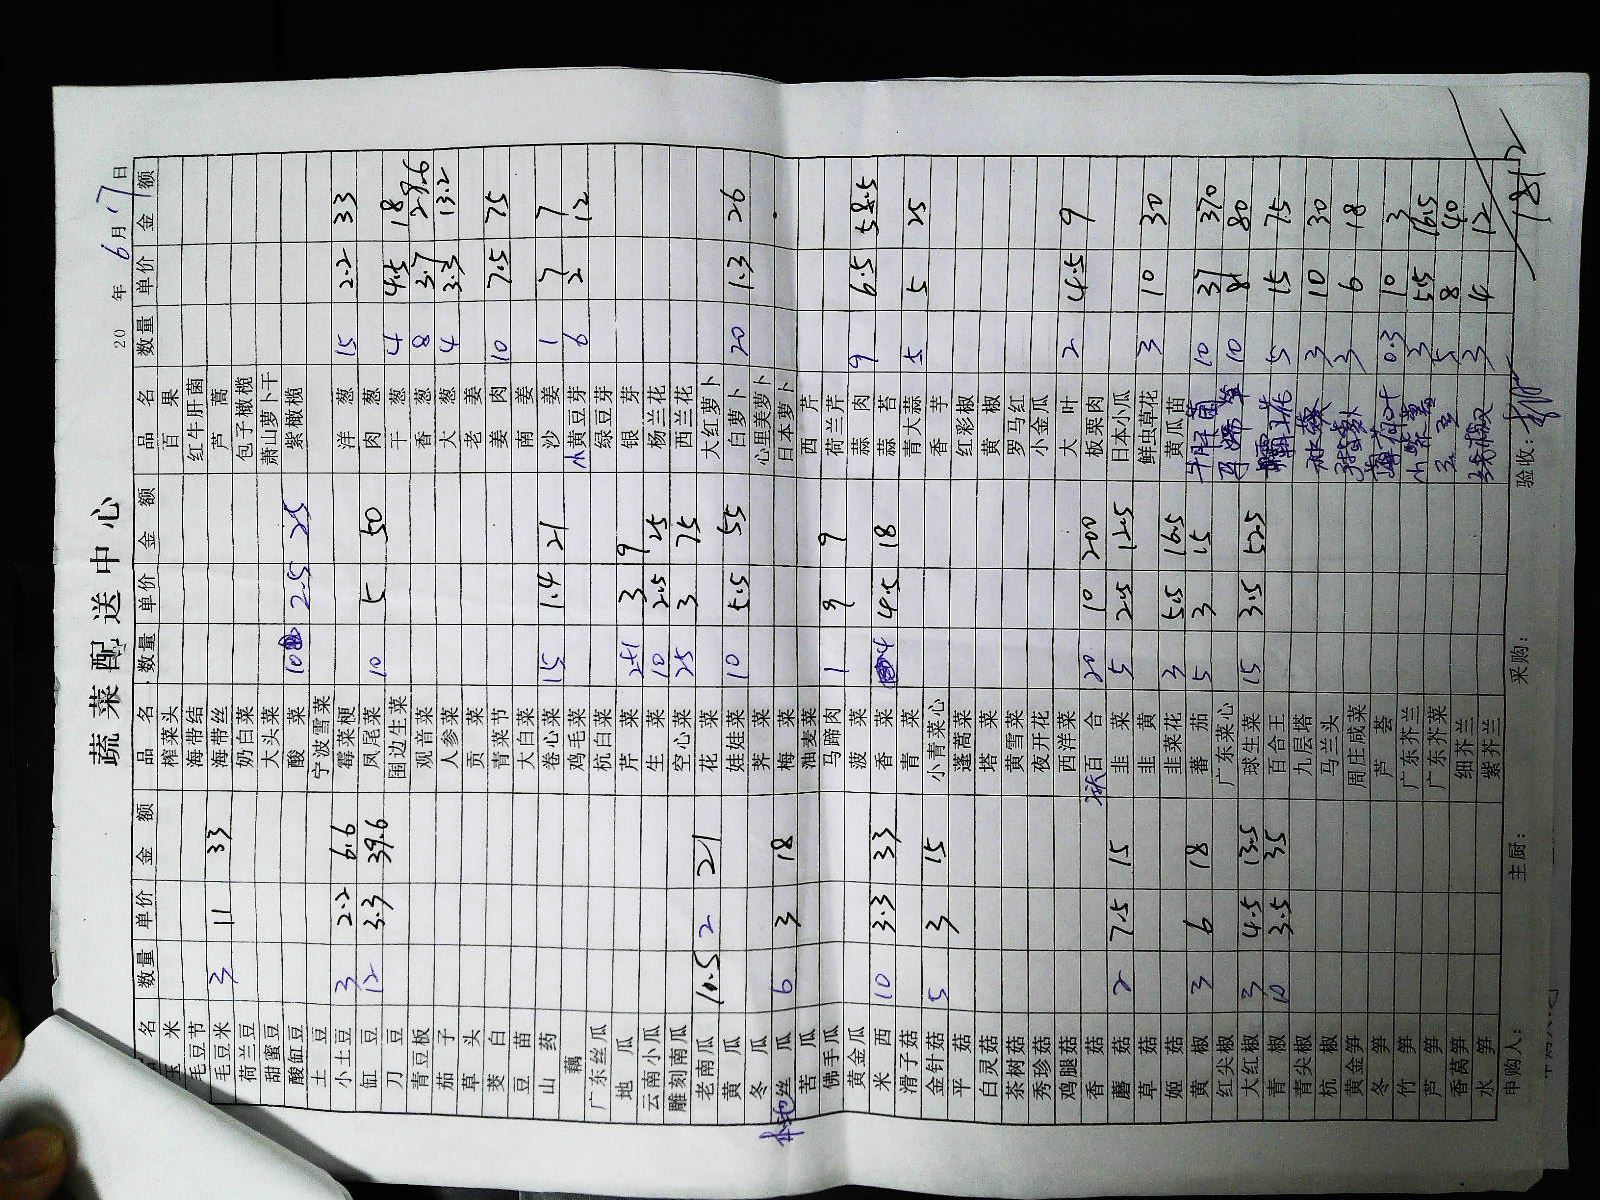 蔬菜配送中心
20 年 6月17日
品名 数量 单价 金额 品名 数量 单价 金额 品名 数量 单价 金额
玉米 榨菜头 百果
毛豆节 海带结 红牛肝菌
毛豆米 3 11 33 海带丝 芦蒿
荷兰豆 奶白菜 包子橄榄
甜蜜豆 大头菜 萧山萝卜干
酸缸豆 酸菜 10 2.5 25 紫橄榄
土豆 宁波雪菜
小土豆 3 2.2 6.6 霉菜梗 洋葱 15 2.2 33
缸豆 12 3.3 39.6 凤尾菜 10 5 50 肉葱
刀豆 围边生菜 干葱 4 4.5 18
青豆板 观音菜 香葱 8 3.7 29.6
茄子 人参菜 大葱 4 3.3 13.2
草头 贡菜 老姜
茭白 青菜节 姜肉 10 7.5 75
豆苗 大白菜 南姜
山药 卷心菜 15 1.4 21 沙姜 1 7 7
藕 鸡毛菜 小黄豆芽 6 2 12
广东丝瓜 杭白菜 绿豆芽
地瓜 芹菜 2+1 3 9 银芽
云南小瓜 生菜 10 2.5 25 杨兰花
雕刻南瓜 空心菜 25 3 75 西兰花
老南瓜 10.5 2 21 花菜 大红萝卜
黄瓜 娃娃菜 10 5.5 55 白萝卜 20 1.3 26
冬瓜 荠菜 心里美萝卜
本地丝瓜 6 3 18 梅菜 日本萝卜
苦瓜 油麦菜 西芹
佛手瓜 马蹄肉 1 9 9 荷兰芹
黄金瓜 菠菜 蒜肉 9 6.5 58.5
米西 10 3.3 33 香菜 4 4.5 18 蒜苔
滑子菇 青菜 青大蒜 5 5 25
金针菇 5 3 15 小青菜心 香芋
平菇 蓬蒿菜 红彩椒
白灵菇 塔菜 黄椒
茶树菇 黄雪菜 罗马红
秀珍菇 夜开花 小金瓜
鸡腿菇 西洋菜 大叶 2 4.5 9
香菇 百合 20 10 200 板栗肉
蘑菇 2 7.5 15 韭菜 5 2.5 12.5 日本小瓜
草菇 韭黄 鲜虫草花 3 10 30
姬菇 韭菜花 3 5.5 16.5 黄瓜苗
黄椒 3 6 18 蕃茄 5 3 15 牛肝菌 10 37 370
红尖椒 广东菜心 10 8 80
大红椒 3 4.5 13.5 球生菜 15 3.5 52.5
青椒 10 3.5 35 百合王 霸王花 5 15 75
青尖椒 九层塔
杭椒 马兰头 秋葵 3 10 30
黄金笋 周庄咸菜 3 6 18
冬笋 芦荟 薄荷叶 0.3 10 3
竹笋 广东芥兰 小紫薯 3 5.5 16.5
芦笋 广东芥菜 5 8 40
香莴笋 细芥兰
水笋 紫芥兰 3 4 12
申购人: 主厨: 采购: 验收: 1812